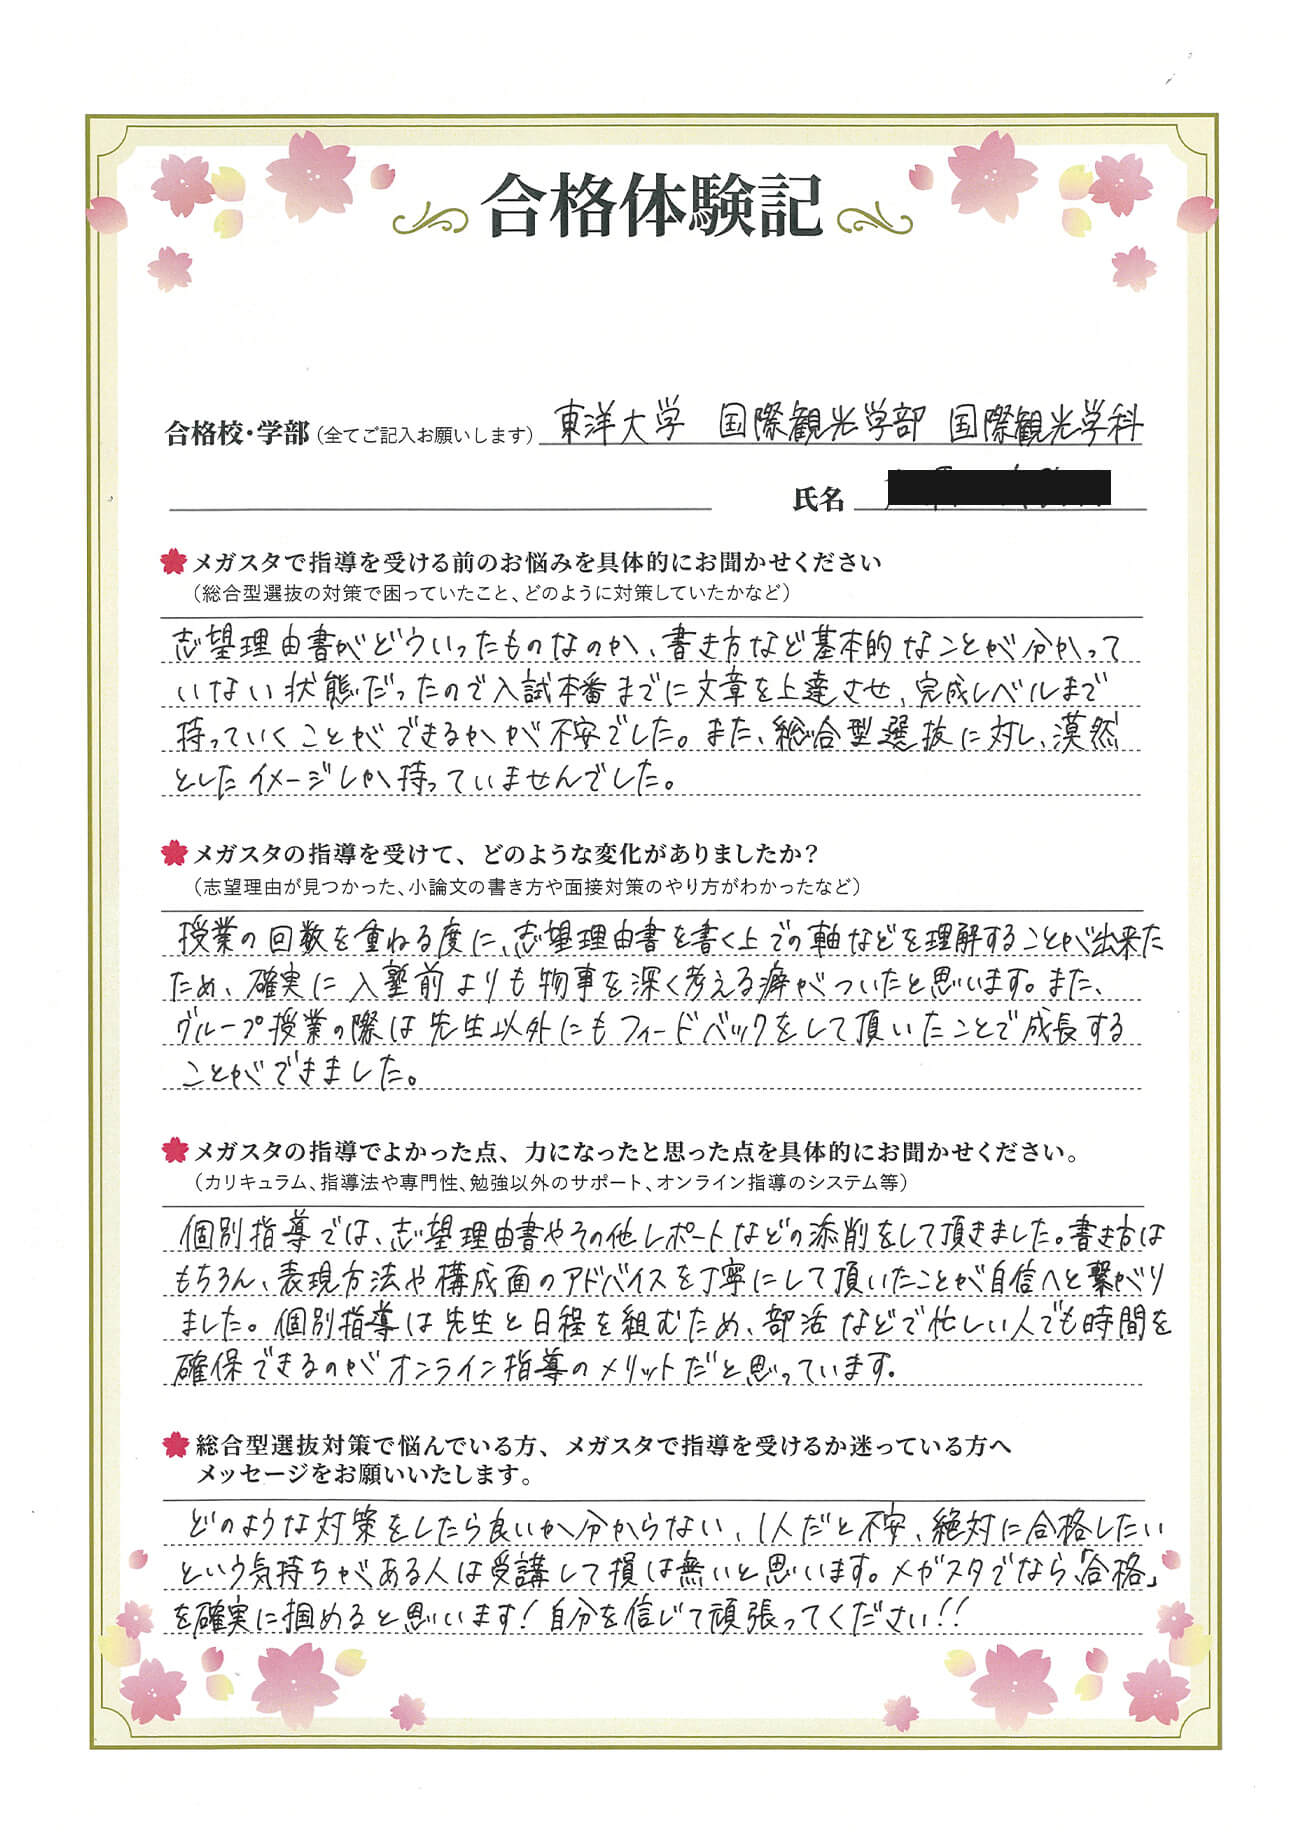 合格体験記
合格校・学部（全てご記入お願いします） 東洋大学 国際観光学部 国際観光学科
氏名
メガスタで指導を受ける前のお悩みを具体的にお聞かせください
（総合型選抜の対策で困っていたこと、どのように対策していたかなど）
志望理由書がどういったものなのか、書き方など基本的なことが分かって
いない状態だったので入試本番までに文章を上達させ、完成レベルまで
持っていくことができるかが不安でした。また、総合型選抜に対し、漠然
としたイメージしか持っていませんでした。
メガスタの指導を受けて、どのような変化がありましたか？
（志望理由が見つかった、小論文の書き方や面接対策のやり方がわかったなど）
授業の回数を重ねる度に、志望理由書を書く上での軸などを理解することが出来た
ため、確実に入塾前よりも物事を深く考える癖がついたと思います。また、
グループ授業の際は先生以外にもフィードバックをして頂いたことで成長する
ことができました。
メガスタの指導でよかった点、力になったと思った点を具体的にお聞かせください。
（カリキュラム、指導法や専門性、勉強以外のサポート、オンライン指導のシステム等）
個別指導では、志望理由書やその他レポートなどの添削をして頂きました。書き方は
もちろん、表現方法や構成面のアドバイスを丁寧にして頂いたことが自信へと繋がり
ました。個別指導は先生と日程を組むため、部活などで忙しい人でも時間を
確保できるのがオンライン指導のメリットだと思っています。
総合型選抜対策で悩んでいる方、メガスタで指導を受けるか迷っている方へ
メッセージをお願いいたします。
どのような対策をしたら良いか分からない、1人だと不安、絶対に合格したい
という気持ちがある人は受講して損は無いと思います。メガスタでなら、「合格」
を確実に掴めると思います！自分を信じて頑張ってください！！